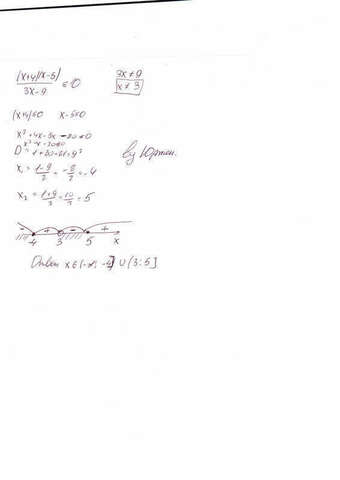 (x+4)(x-5) / 3x-9 ≤ 0
3x≠9
x≠3
(x+4)≤0 x-5≤0
x²+4x-5x-20≤0
x²-x-20≤0
D=1+80=81=9²
x₁ = 1-9/2 = -8/2 = -4
x₂ = 1+9/2 = 10/2 = 5
- + - +
4 3 5 x
x∈(-∞; -4] ∪ (3; 5]